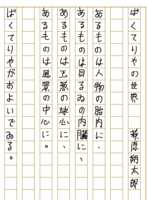 ばくてりやの世界 萩原朔太郎
あるものは人物の胎内に、
あるものは貝るゐの内臓に、
あるものは玉葱の球心に、
あるものは風景の中心に。
ばくてりやがおよいでゐる。